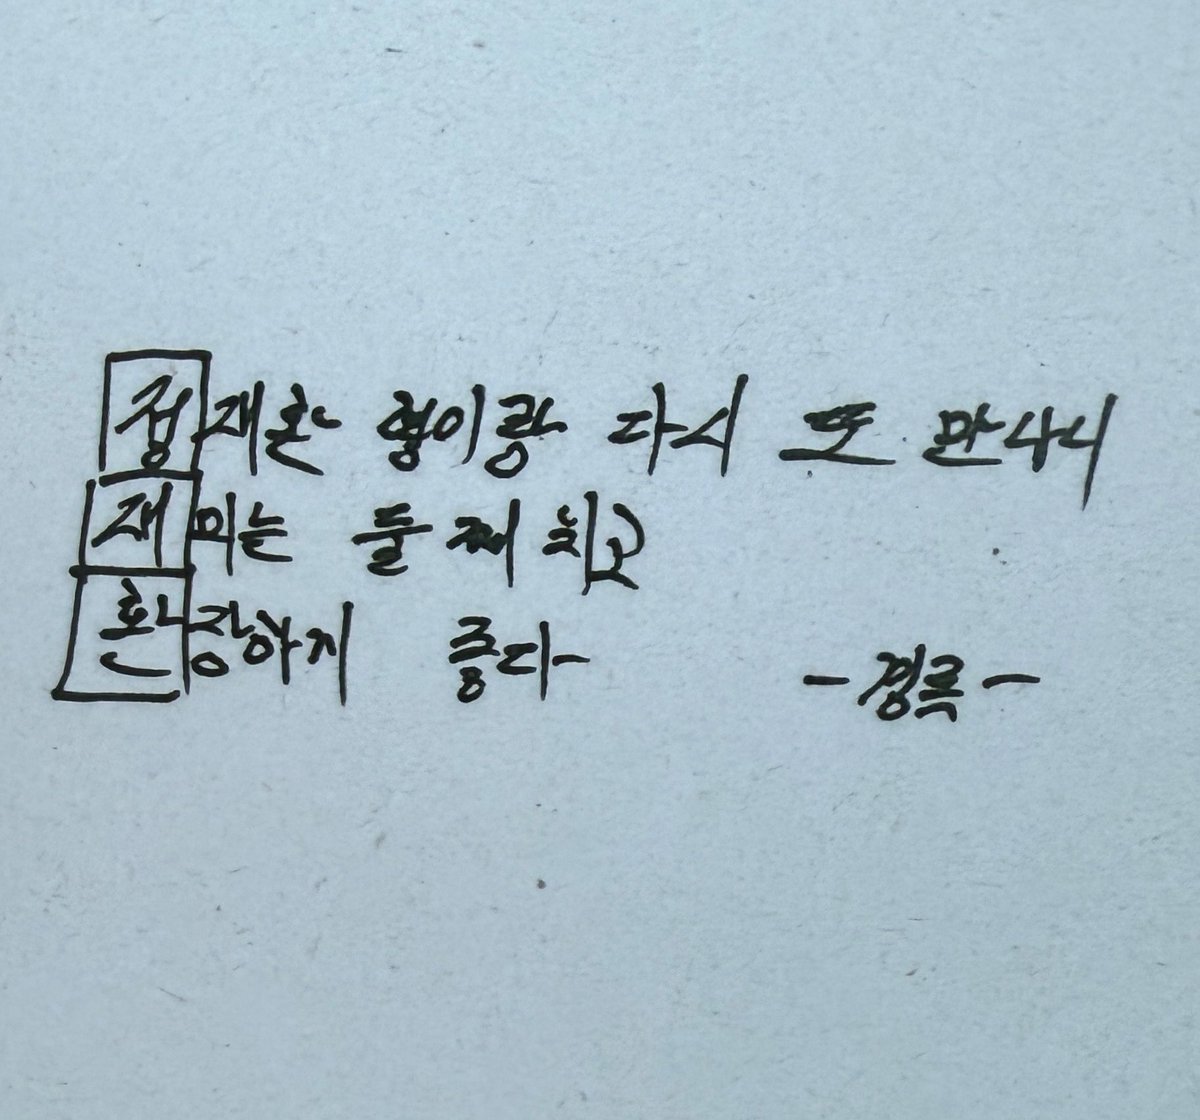 정재환 형이랑 다시 또 만나니
재미는 둘째 치고
환장하게 좋다
-경르-